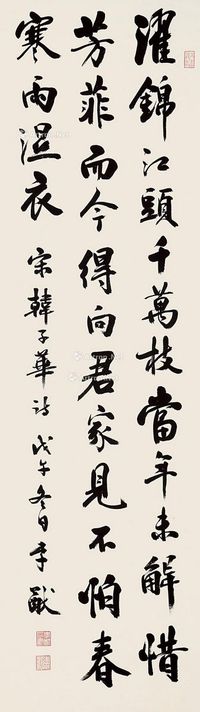 濯錦江頭千萬枝當年未解惜
芳菲而今得向君家見不怕春
寒雨溼衣
宋韓子華詩戊午冬日李猷